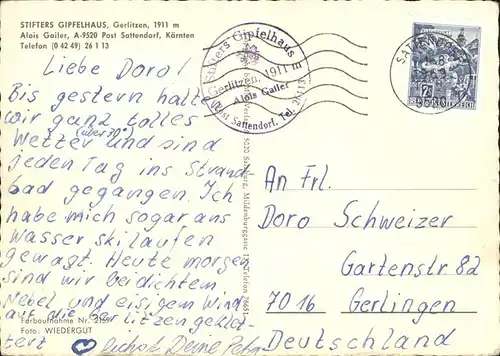 STIFTERS GIPFELHAUS, Gerlitzen, 1911 m
Alois Gailer, A-9520 Post Sattendorf, Kärnten
Telefon (0 42 49) 26 1 13
Liebe Doro!
Bis gestern hatten
wir ganz tolles
(über 30°)
Wetter und sind
jeden Tag ins Strand-
bad gegangen. Ich
habe mich sogar ans
Wasserskilaufen
gewagt. Heute morgen
sind wir bei dichtem
Nebel und eisigem Wind
auf die Gerlitzen geklet-
tert
Farbaufnahme Nr.
Foto: WIEDERGUT
Stifters Gipfelhaus
Gerlitzen, 1911 m
Alois Gailer
Post Sattendorf, Tel. 26113
SATTENDORF
9520
An Frl.
Doro Schweizer
Gartenstraße 82
7016 Gerlingen
Deutschland